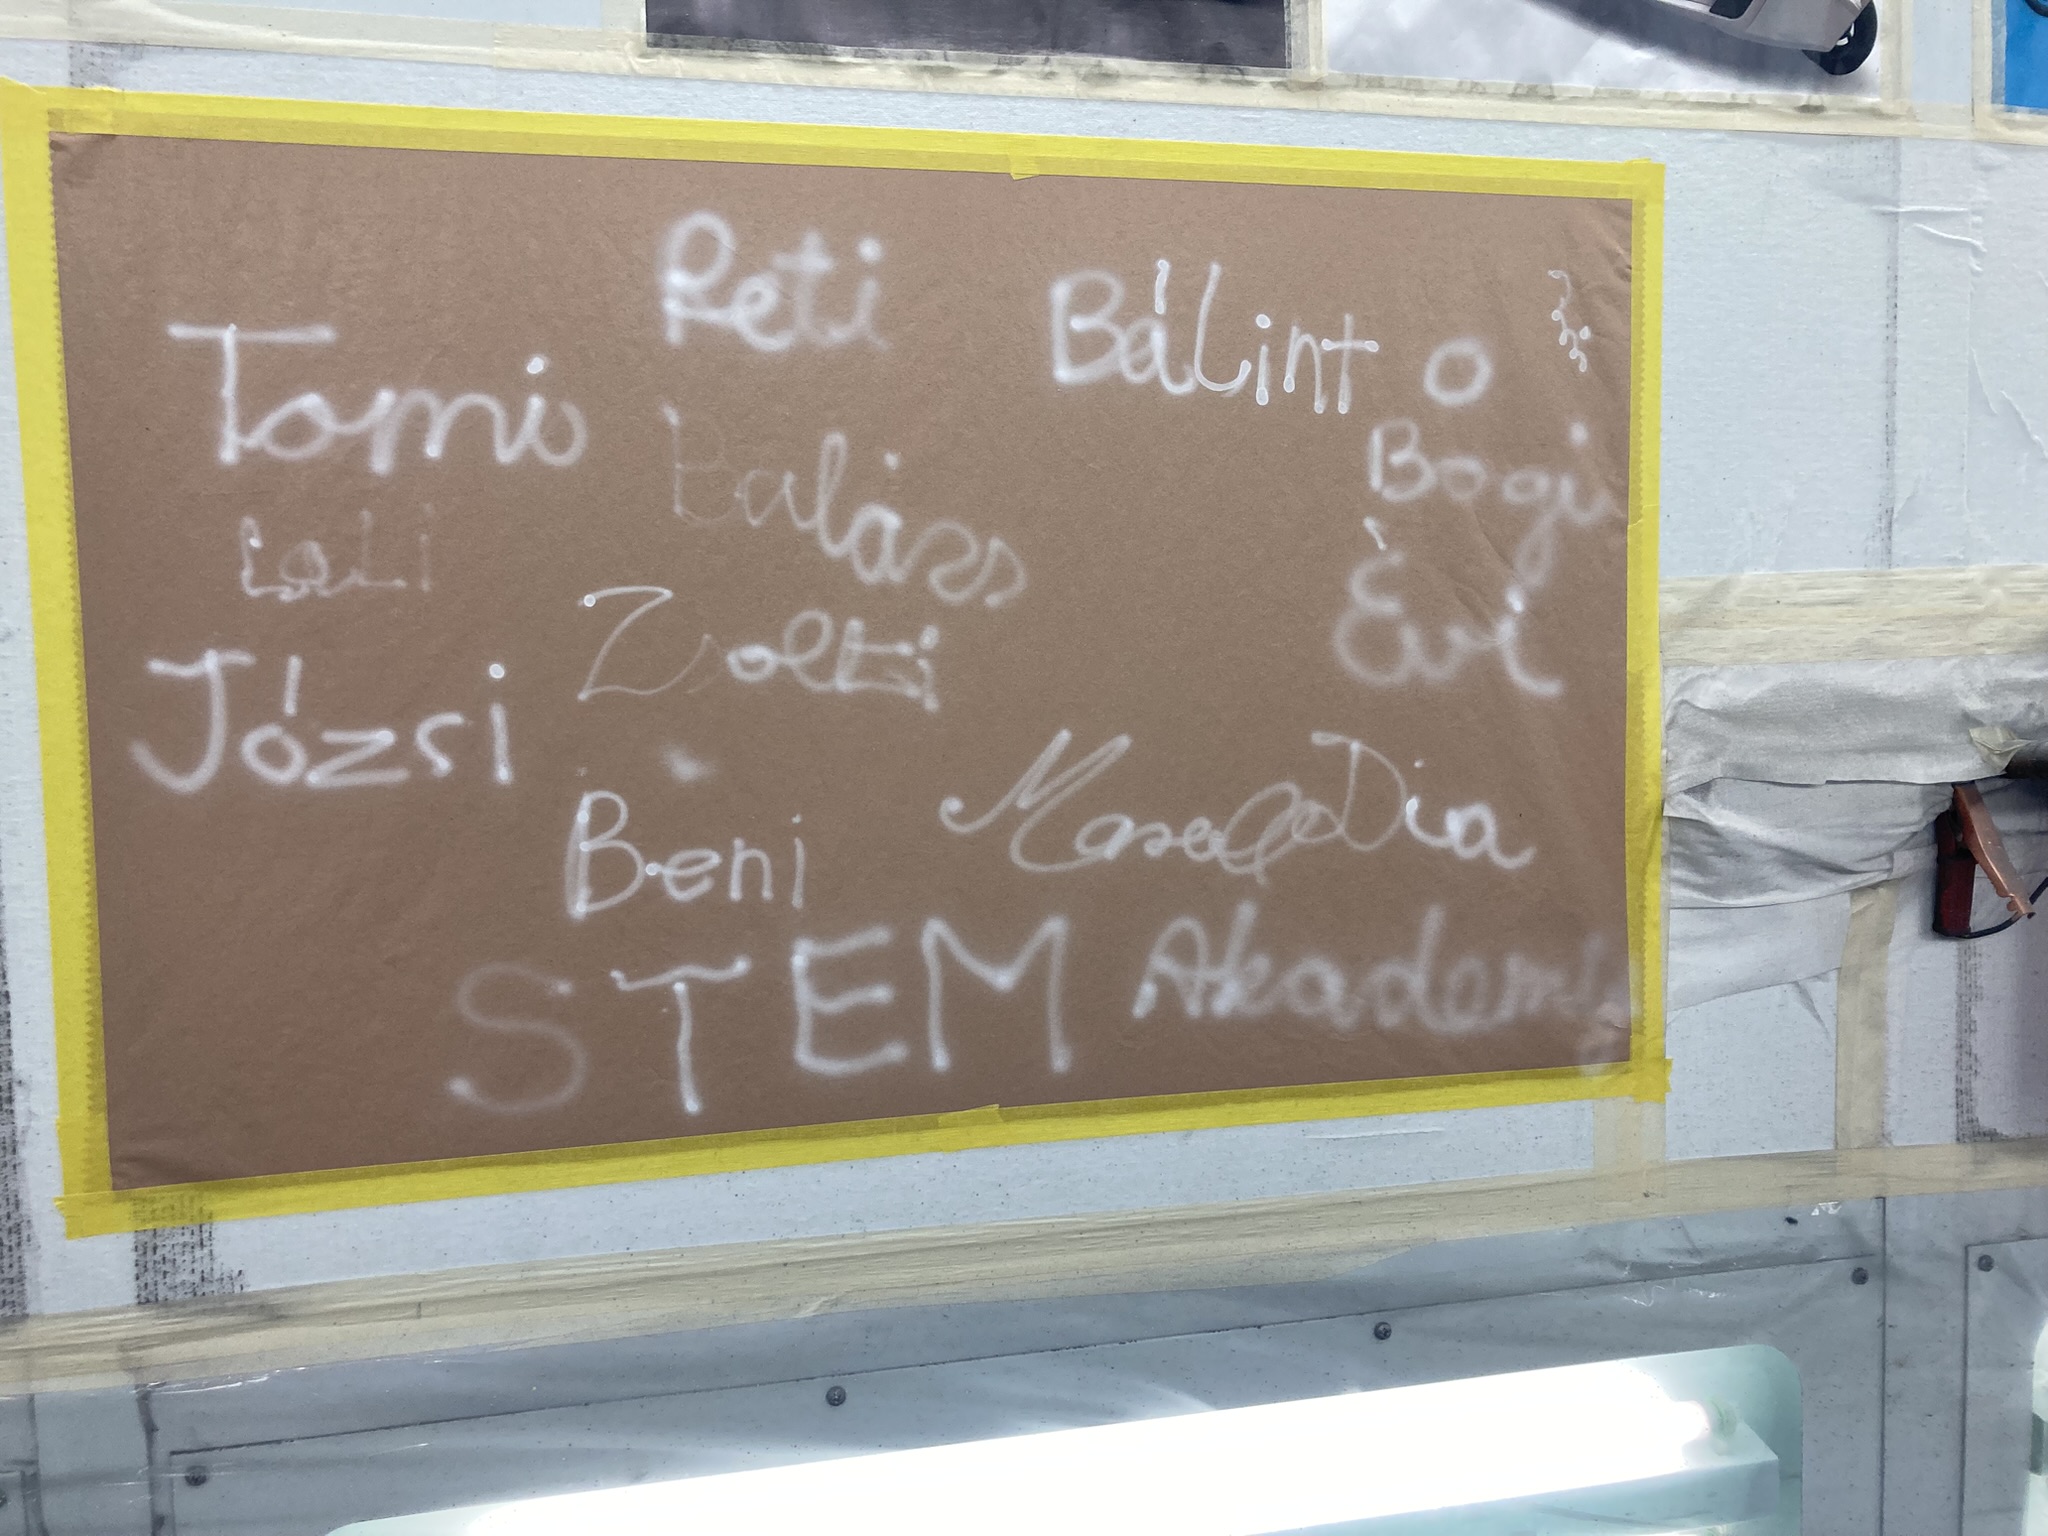 Peti
Bálint
Tomi
Balázs
Bogi
Lali
Zsolti
Évi
Józsi
Beni
Dia
STEM Akademi